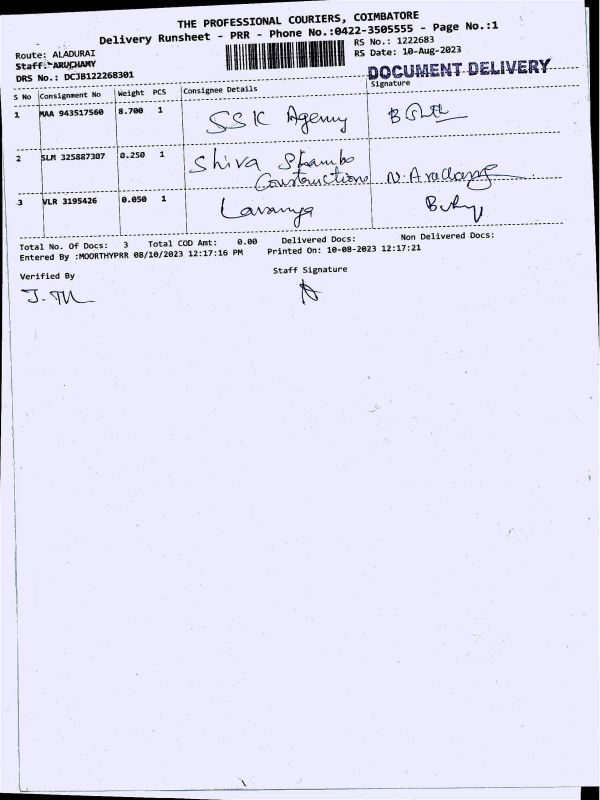 THE PROFESSIONAL COURIERS, COIMBATORE
Delivery Runsheet - PRR - Phone No.:0422-3505555 - Page No.:1
Route: ALADURAI
RS No.: 1222683
Staff: ARUCHAMY
RS Date: 10-Aug-2023
DRS No.: DCJB122268301
DOCUMENT DELIVERY
S No Consignment No Weight PCS Consignee Details Signature
1 MAA 943517560 8.700 1 SSK Agency
2 SLM 325887307 0.250 1 Shiva Shambo
Constructions
3 VLR 3195426 0.050 1 Lavanya
Total No. Of Docs: 3 Total COD Amt: 0.00 Delivered Docs: Non Delivered Docs:
Entered By :MOORTHYPRR 08/10/2023 12:17:16 PM Printed On: 10-08-2023 12:17:21
Verified By Staff Signature